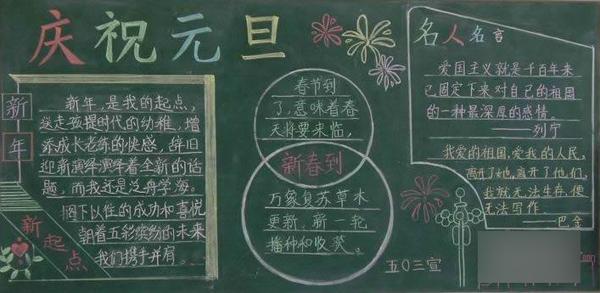 庆祝元旦
新年
新年,是我的起点,
送走孩提时代的幼稚,增
添成长老练的快感,辞旧
迎新演绎演绎着全新的话
题,而我还是泛舟学海。
留下以往的成功和喜悦
朝着五彩缤纷的未来
我们携手并肩。
新起点
春节到
了,意味着春
天将要来临,
新春到
万象复苏草木
更新,新一轮
播种和收获。
五〇三宣
名人名言
爱国主义就是千百年来
固定下来对自己的祖国
的一种最深厚的感情。
——列宁
我爱的祖国,爱我的人民,
离开了她,离开了他们,
我就无法生存,便
无法写作。
——巴金